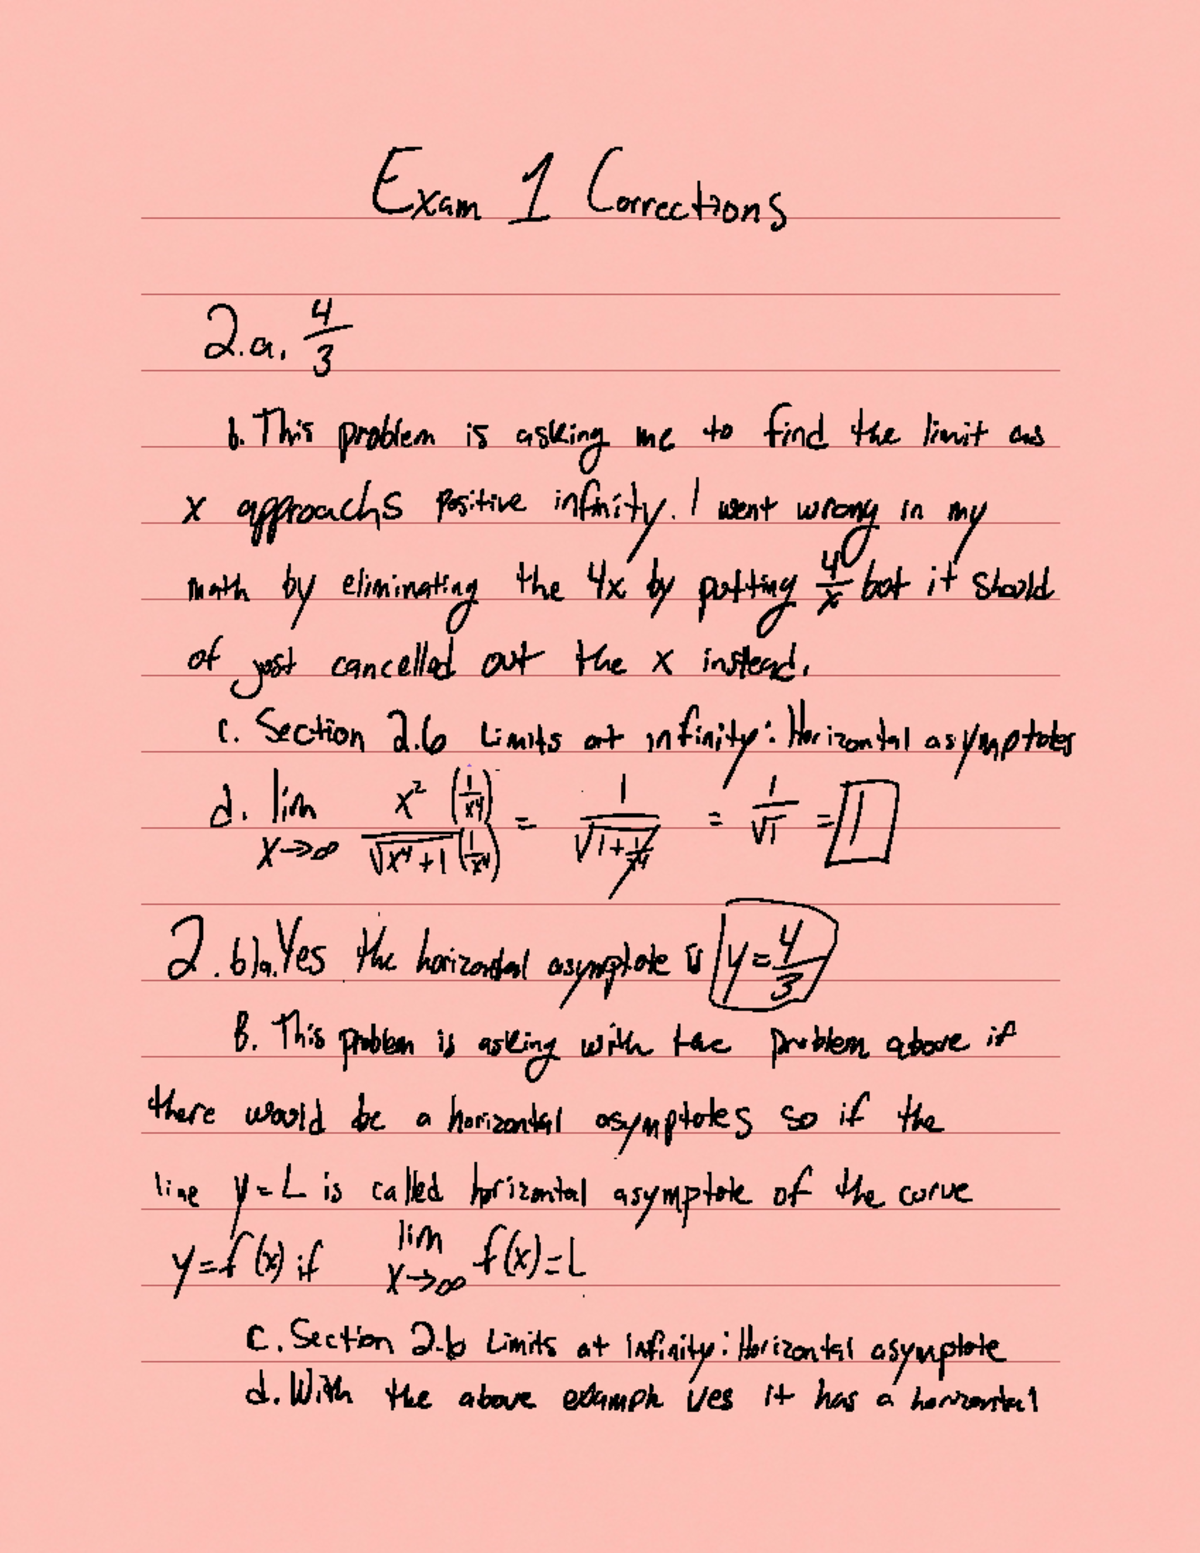 Exam 1 Corrections
2.a. 4/3
b. This problem is asking me to find the limit as
x approachs positive infinity. I went wrong in my
math by eliminating the 4x by putting 4/x but it should
of just cancelled out the x instead.
c. Section 2.6 Limits at infinity: Horizontal asymptotes
d. lim x→∞ x² (1/x⁴) / √x⁴+1 (1/x⁴) = 1 / √1+1/x⁴ = 1/√1 = 1
2.b)a. Yes the horizontal asymptote is y=4/3
B. This problem is asking with the problem above if
there would be a horizontal asymptotes so if the
line y=L is called horizontal asymptote of the curve
y=f(x) if lim x→∞ f(x)=L
c. Section 2.6 Limits at Infinity: Horizontal asymptote
d. With the above example yes it has a horizontal